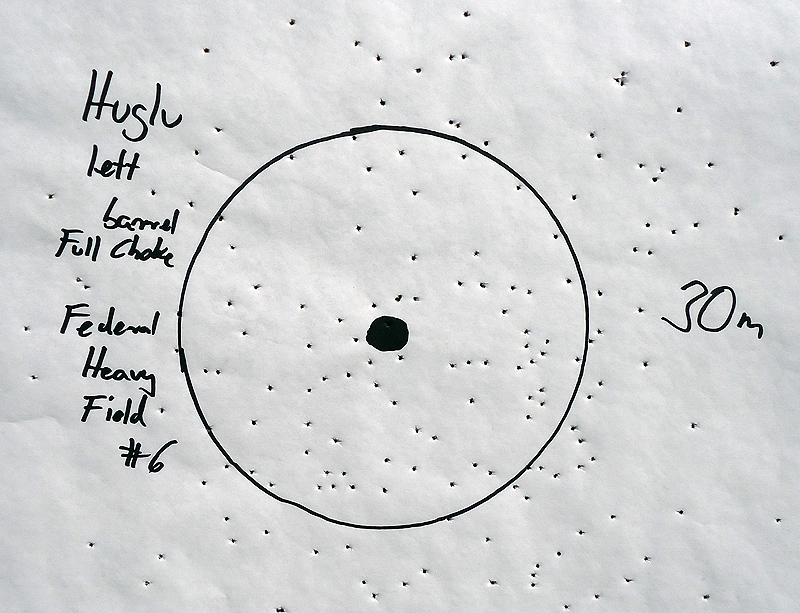 Huglu
left
barrel
Full Choke
Federal
Heavy
Field
#6
30m